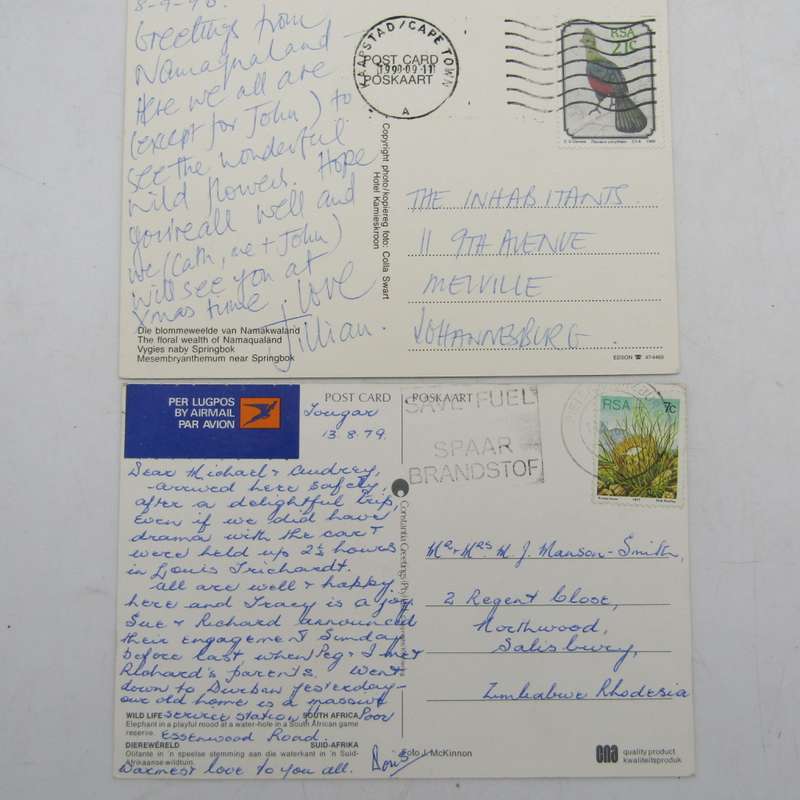 8-9-90.
Greetings from
Namaqualand
Here we all are
(except for John) to
see the wonderful
wild flowers. Hope
you're all well and
we (Cath, me + John)
will see you at
Xmas time. Love
Jillian.
Die blommeweelde van Namakwaland
The floral wealth of Namaqualand
Vygies naby Springbok
Mesembryanthemum near Springbok
KAAPSTAD/CAPE TOWN
POST CARD
1990-09-11
POSKAART
A
RSA
21c
Copyright photo/kopiereg foto: Colla Swart
Hotel Kamieskroon
THE INHABITANTS
11 9TH AVENUE
MELVILLE
JOHANNESBURG
EDSON
PER LUGPOS
BY AIRMAIL
PAR AVION
POST CARD
POSKAART
Tongar
13.8.79.
SAVE FUEL
SPAAR
BRANDSTOF
RSA 7c
1977
Dear Michael & Audrey,
arrived here safely,
after a delightful trip,
even if we did have
drama with the car &
were held up 2½ hours
in Louis Trichardt.
All are well & happy
here and Tracy is a joy
Sue & Richard announced
their engagement Sunday
before last when Peg & I met
Richard's parents. Went
down to Durban yesterday -
our old home is a massive
service station! Poor
Essenwood Road.
Warmest love to you all. Doris
WILD LIFE SOUTH AFRICA
Elephant in a playful mood at a water-hole in a South African game
reserve.
DIEREWÊRELD SUID-AFRIKA
Olifante in 'n speelse stemming aan die waterkant in 'n Suid-
Afrikaanse wildtuin.
Constantia Greetings (Pty)
Mr & Mrs M. J. Manson-Smith,
2 Regent Close,
Northwood,
Salisbury,
Zimbabwe Rhodesia
Foto J. McKinnon
cna quality product
kwaliteitsproduk